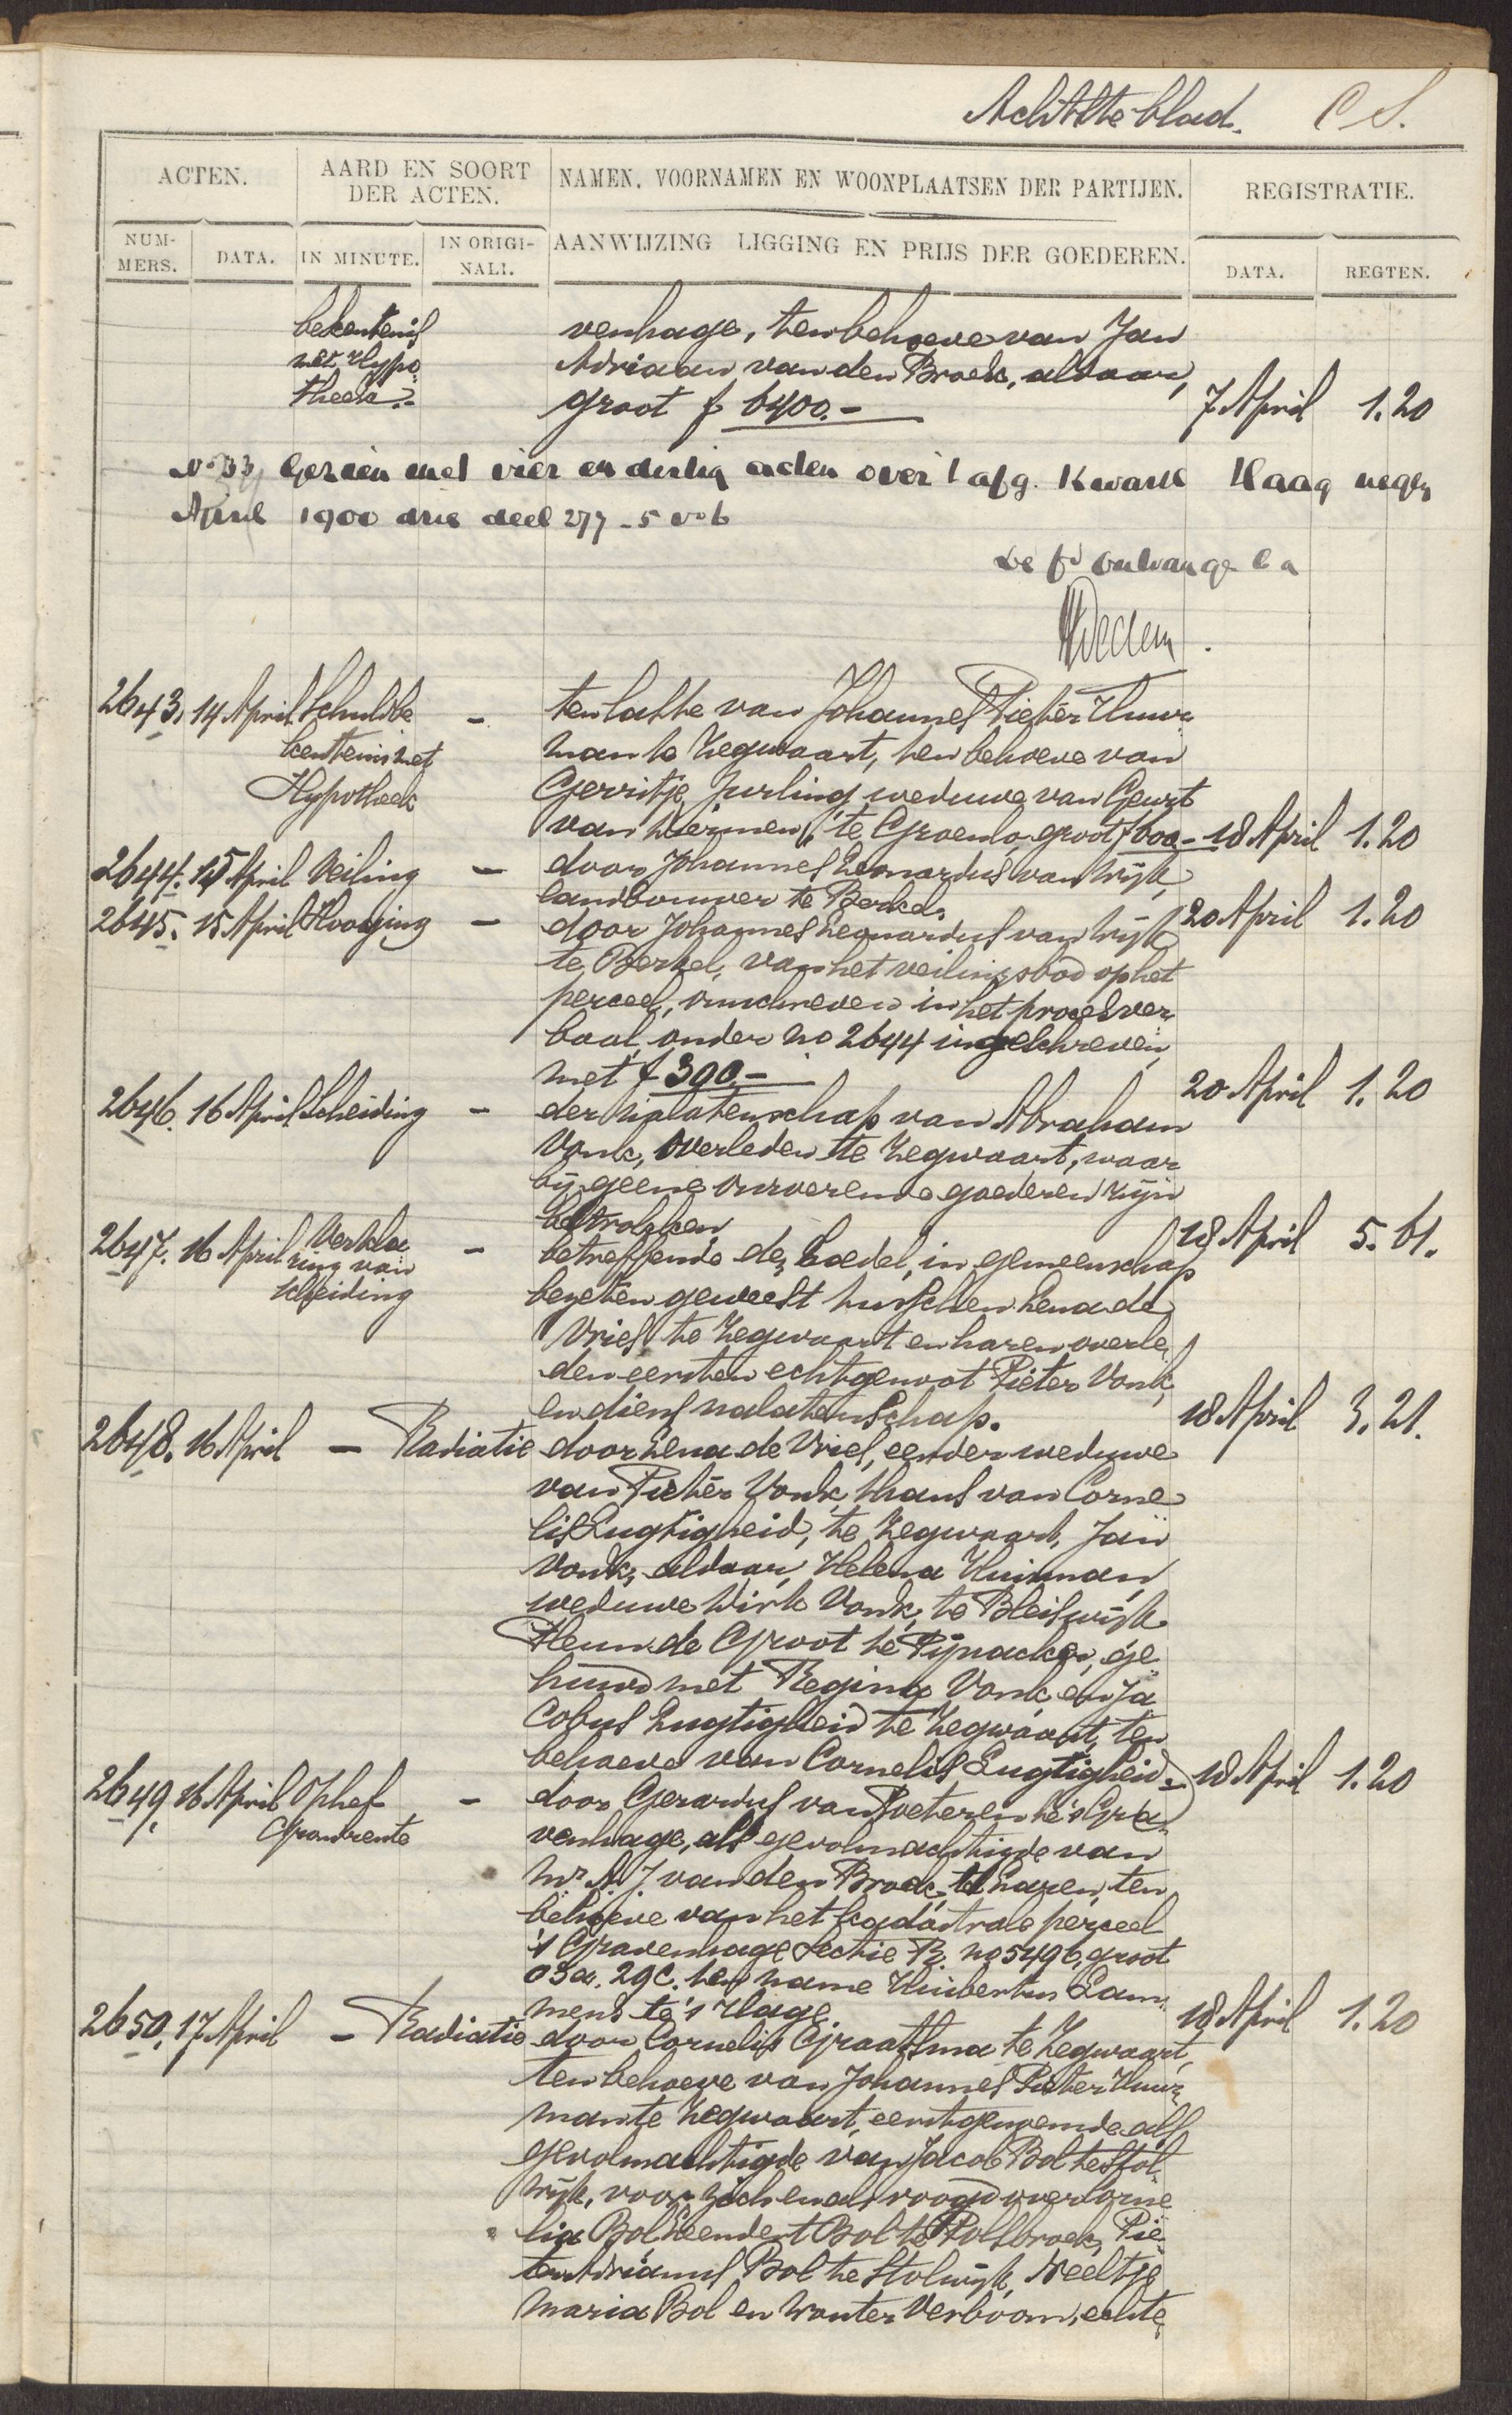 Achtste blad. C S.
ACTEN. AARD EN SOORT DER ACTEN. NAMEN, VOORNAMEN EN WOONPLAATSEN DER PARTIJEN. REGISTRATIE.
NUM-MERS. DATA. IN MINUTE. IN ORIGI-NALI. AANWIJZING LIGGING EN PRIJS DER GOEDEREN. DATA. REGTEN.
bekentenis venhage, ten behoeve van Jan
met Hypo Adriaan van den Broek, aldaar,
theek.- groot f 6400.- 7 April 1.20
No 33 Gezien met vier en dertig acten over 't afg. Kwart Haag negen
April 1900 drie deel 277-5 vo 6
De fd Ontvanger
2643. 14 April Schuldbe - ten laste van Johannes Pieter Huur
kentenis met man te Zegwaart, ten behoeve van
Hypotheek Gerritje Jurling weduwe van Geurt
van te Groenlo, groot f 600.- 18 April 1.20
2644. 15 April Veiling - door Johannes Leonardus van Wijk,
landbouwer te Berkel. 20 April 1.20
2645. 15 April Hooging - door Johannes Leonardus van Wijk
te Berkel, van het veilingsbod op het
perceel, omschreven in het proces ver
baal onder no 2644 ingeschreven,
met f 390.- 20 April 1.20
2646. 16 April Scheiding - der nalatenschap van Abraham
Vonk, overleden te Zegwaart, waar
bij geene onroerende goederen zijn
betrokken. 18 April 5.61.
2647. 16 April Verkla - betreffende de boedel, in gemeenschap
ring van bezeten geweest tusschen Lena de
scheiding Vries te Zegwaart en haren overle
den eersten echtgenoot Pieter Vonk,
en diens nalatenschap. 18 April 3.21.
2648. 16 April - Radiatie door Lena de Vries, eerder weduwe
van Pieter Vonk, thans van Corne
lis Lugtigheid, te Zegwaart, Jan
Vonk, aldaar, Helena Huisman,
weduwe Dirk Vonk, te Bleiswijk
Teun de Groot te Pijnacker, ge
huwd met Regina Vonk, en Ja
cobus Lugtigheid te Zegwaart, ten
behoeve van Cornelis Lugtigheid.- 18 April 1.20
2649. 16 April Ophef - door Gerardus van Poeteren te 's Gra
Grondrente venhage, als gevolmachtigde van
Mr A. J. van den Broek, te Laren, ten
behoeve van het kadastrale perceel
's Gravenhage Sectie R. no 5496, groot
03 a. 29 c. ten name Huibertus Lam
mens te 's Hage 18 April 1.20
2650. 17 April - Radiatie door Cornelis Graatsma te Zegwaart,
ten behoeve van Johannes Pieter Huur
man te Zegwaart, eerstgenoemde als
gevolmachtigde van Jacob Bol te Stol
wijk, voor zich en als voogd over Corne
lia Bol, Leendert Bol te Polsbroek, Pie
ter Adrianus Bol te Stolwijk, Neeltje
Maria Bol en Wouter Verboom, echte